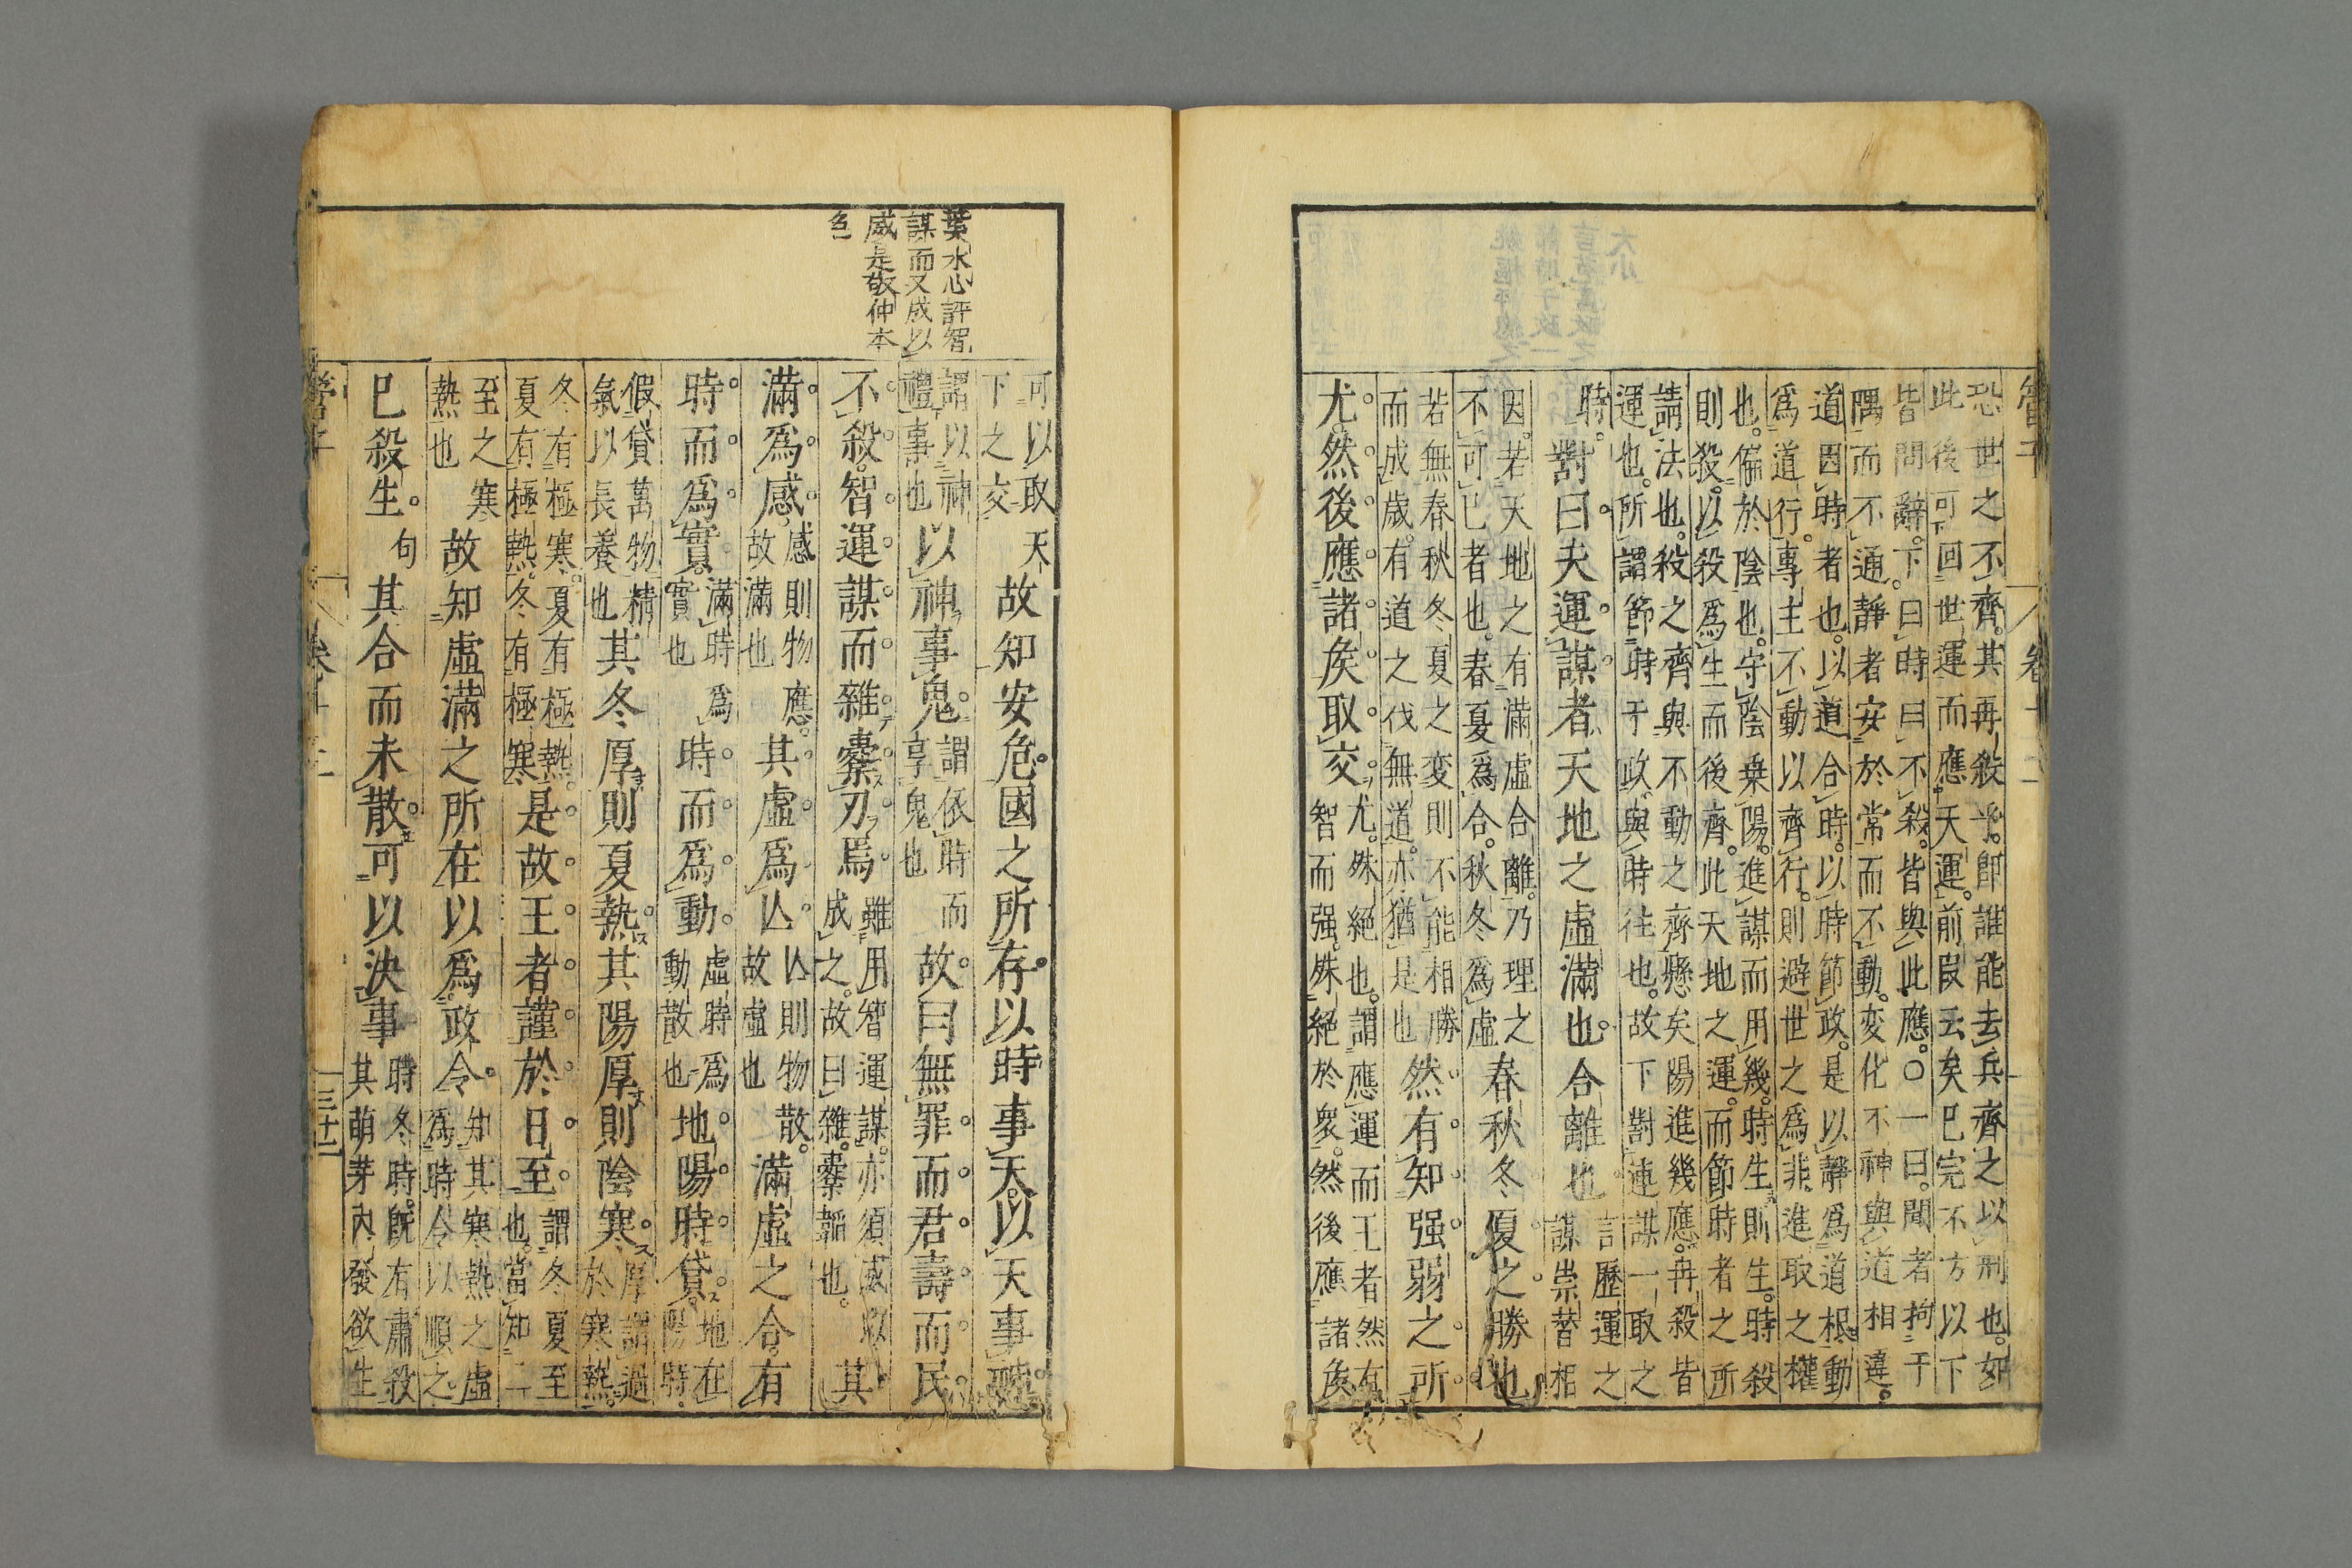 管子
卷十二
恐世之不齊其再殺乎即誰能去兵齊之以刑也如
此後可回世運而應天運前段云矣已完不方以下
皆問辭下曰時曰不殺皆與此應○一曰聞者拘于
隅而不通靜者安於常而不動変化不神與道相違
道因時者也以道合時以時節政是以靜爲道根動
爲道行專主不動以齊行則避世之爲非進取之權
也偏於陰也守陰乗陽進謀而用幾時生則生時殺
則殺以殺爲生而後齊此天地之運而節時者之所
請法也殺之齊與不動之齊懸矣陽進幾應再殺皆
運也所謂節時于政與時往也故下對運謀一取之
時對曰夫運謀者天地之虛滿也合離也
言歷運之
謀崇替相
因若天地之有滿虛合離乃理之
不可已者也春夏爲合秋冬爲虛
春秋冬夏之勝也
若無春秋冬夏之変則不能相勝
而成歲有道之伐無道亦猶是也
然有知强弱之所
尤然後應諸矦取交
尤殊絕也謂應運而王者然有
智而强殊絕於衆然後應諸矦
葉水心評智
謀而又成以
威是敬仲本
色
可以取天
下之交
故知安危國之所存以時事天以天事神
謂以神
禮事也
以神事鬼
謂依時而
享鬼也
故曰無罪而君壽而民
不殺智運謀而雜橐刃焉
雖用智運謀亦須威以
成之故曰雜橐韜也
其
滿爲感
感則物應
故滿也
其虛爲亾
亾則物散
故虛也
滿虛之合有
時而爲實
滿時爲
實也
時而爲動
虛時爲
動散也
地陽時貸
地在陽時
假貸萬物精
氣以長養也
其冬厚則夏熱其陽厚則陰寒
厚謂過
於寒熱
冬有極寒夏有極熱
夏有極熱冬有極寒
是故王者謹於日至
謂冬夏至
也當知二
至之寒
熱也
故知虛滿之所在以爲政令
知其寒熱之虛
爲時令以順之
已殺生
句
其合而未散可以決事
時冬時旣有肅殺
其萌芽內發欲生
管子
卷十二
三十二